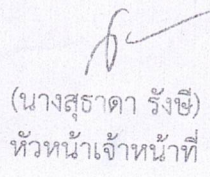 (นางสุธาดา รังษี)
หัวหน้าเจ้าหน้าที่